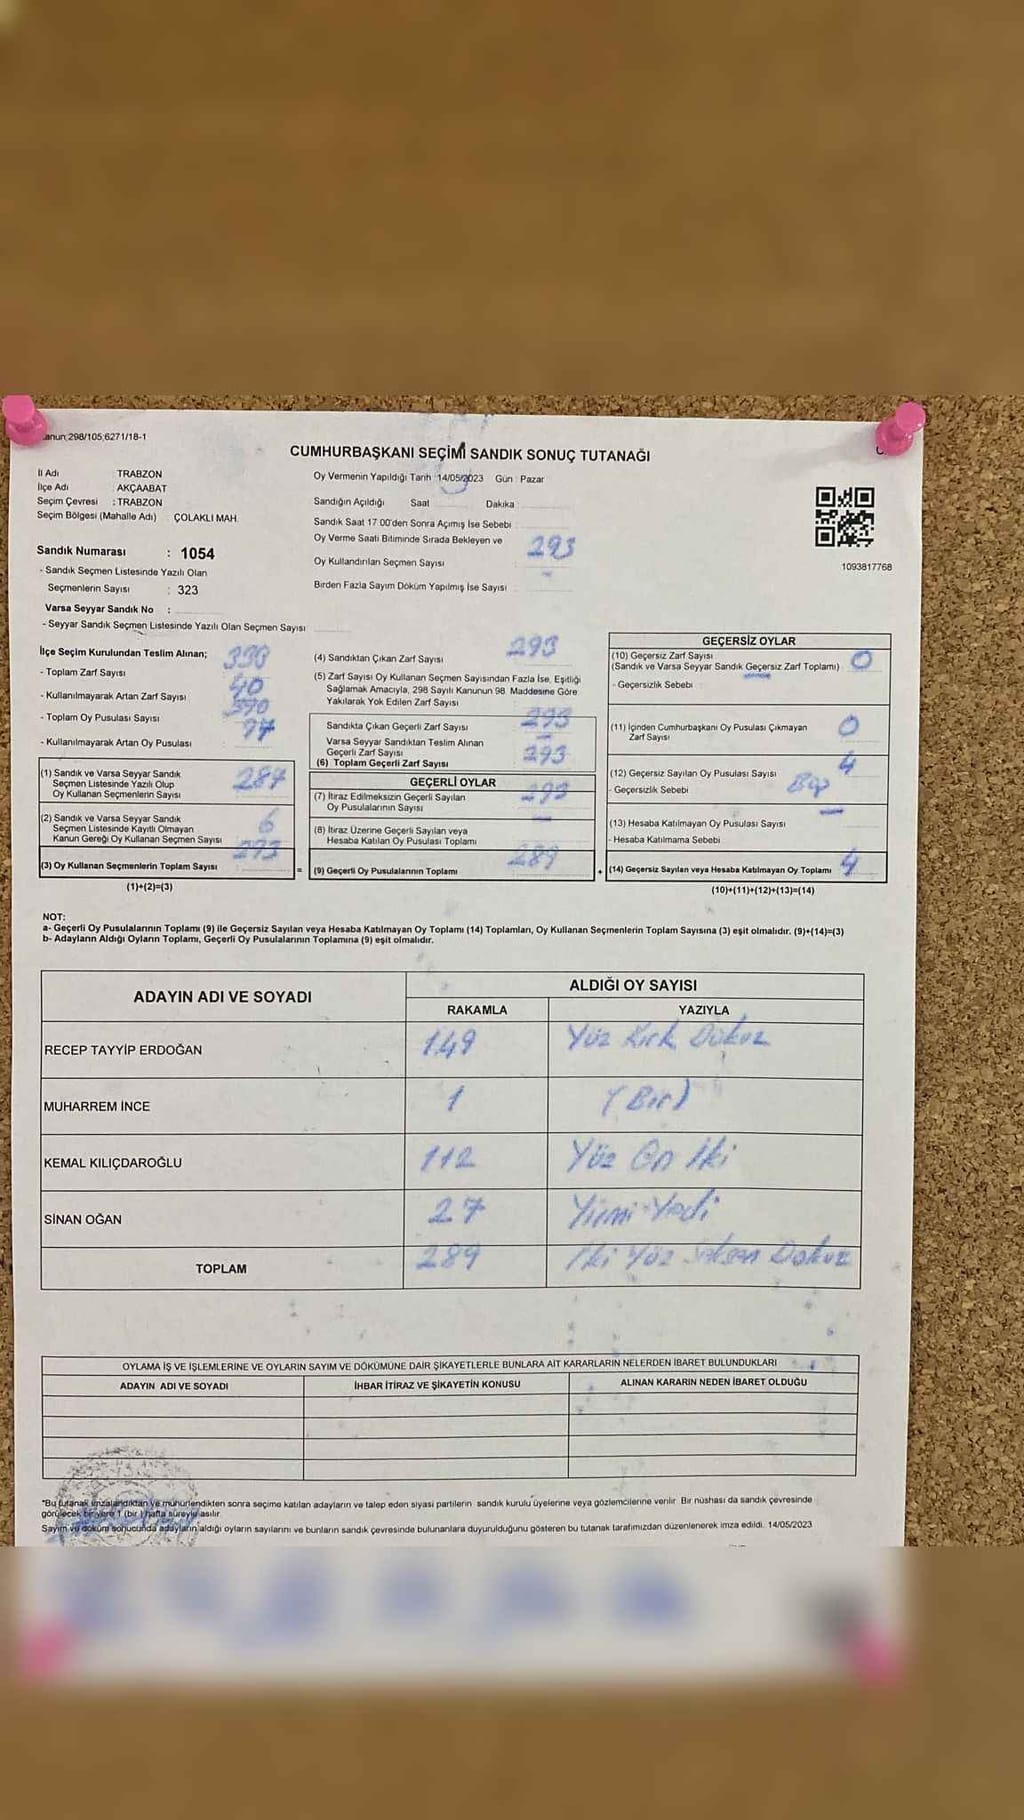 anun;298/105;6271/18-1
CUMHURBAŞKANI SEÇİMİ SANDIK SONUÇ TUTANAĞI
İl Adı TRABZON
İlçe Adı : AKÇAABAT
Seçim Çevresi : TRABZON
Seçim Bölgesi (Mahalle Adı) ÇOLAKLI MAH.
Sandık Numarası : 1054
- Sandık Seçmen Listesinde Yazılı Olan
Seçmenlerin Sayısı : 323
Varsa Seyyar Sandık No :
- Seyyar Sandık Seçmen Listesinde Yazılı Olan Seçmen Sayısı
Oy Vermenin Yapıldığı Tarih : 14/05/2023 Gün : Pazar
Sandığın Açıldığı Saat Dakika :
Sandık Saat 17:00'den Sonra Açımış İse Sebebi :
Oy Verme Saati Bitiminde Sırada Bekleyen ve
Oy Kullandırılan Seçmen Sayısı 293
Birden Fazla Sayım Döküm Yapılmış İse Sayısı :
1093817768
İlçe Seçim Kurulundan Teslim Alınan;
- Toplam Zarf Sayısı 330
- Kullanılmayarak Artan Zarf Sayısı 40
- Toplam Oy Pusulası Sayısı
- Kullanılmayarak Artan Oy Pusulası 97
(1) Sandık ve Varsa Seyyar Sandık
Seçmen Listesinde Yazılı Olup
Oy Kullanan Seçmenlerin Sayısı 287
(2) Sandık ve Varsa Seyyar Sandık
Seçmen Listesinde Kayıtlı Olmayan
Kanun Gereği Oy Kullanan Seçmen Sayısı 6
(3) Oy Kullanan Seçmenlerin Toplam Sayısı 293
(1)+(2)=(3)
(4) Sandıktan Çıkan Zarf Sayısı 293
(5) Zarf Sayısı Oy Kullanan Seçmen Sayısından Fazla İse, Eşitliği
Sağlamak Amacıyla, 298 Sayılı Kanunun 98. Maddesine Göre
Yakılarak Yok Edilen Zarf Sayısı
Sandıkta Çıkan Geçerli Zarf Sayısı 293
Varsa Seyyar Sandıktan Teslim Alınan
Geçerli Zarf Sayısı
(6) Toplam Geçerli Zarf Sayısı 293
GEÇERLİ OYLAR
(7) İtiraz Edilmeksizin Geçerli Sayılan
Oy Pusulalarının Sayısı 293
(8) İtiraz Üzerine Geçerli Sayılan veya
Hesaba Katılan Oy Pusulası Toplamı
= (9) Geçerli Oy Pusulalarının Toplamı 289
GEÇERSİZ OYLAR
(10) Geçersiz Zarf Sayısı 0
(Sandık ve Varsa Seyyar Sandık Geçersiz Zarf Toplamı)
- Geçersizlik Sebebi
(11) İçinden Cumhurbaşkanı Oy Pusulası Çıkmayan
Zarf Sayısı 0
(12) Geçersiz Sayılan Oy Pusulası Sayısı 4
- Geçersizlik Sebebi
(13) Hesaba Katılmayan Oy Pusulası Sayısı
- Hesaba Katılmama Sebebi
+ (14) Geçersiz Sayılan veya Hesaba Katılmayan Oy Toplamı 4
(10)+(11)+(12)+(13)=(14)
NOT:
a- Geçerli Oy Pusulalarının Toplamı (9) ile Geçersiz Sayılan veya Hesaba Katılmayan Oy Toplamı (14) Toplamları, Oy Kullanan Seçmenlerin Toplam Sayısına (3) eşit olmalıdır. (9)+(14)=(3)
b- Adayların Aldığı Oyların Toplamı, Geçerli Oy Pusulalarının Toplamına (9) eşit olmalıdır.
ADAYIN ADI VE SOYADI ALDIĞI OY SAYISI
RAKAMLA YAZIYLA
RECEP TAYYİP ERDOĞAN 149 Yüz Kırk Dokuz
MUHARREM İNCE 1 (Bir)
KEMAL KILIÇDAROĞLU 112 Yüz On İki
SİNAN OĞAN 27 Yirmi Yedi
TOPLAM 289 İki Yüz Seksen Dokuz
OYLAMA İŞ VE İŞLEMLERİNE VE OYLARIN SAYIM VE DÖKÜMÜNE DAİR ŞİKAYETLERLE BUNLARA AİT KARARLARIN NELERDEN İBARET BULUNDUKLARI
ADAYIN ADI VE SOYADI İHBAR İTİRAZ VE ŞİKAYETİN KONUSU ALINAN KARARIN NEDEN İBARET OLDUĞU
*Bu tutanak imzalandıktan ve mühürlendikten sonra seçime katılan adayların ve talep eden siyasi partilerin sandık kurulu üyelerine veya gözlemcilerine verilir. Bir nüshası da sandık çevresinde
görülecek bir yere 1 (bir) hafta süreyle asılır.
Sayım ve döküm sonucunda adayların aldığı oyların sayılarını ve bunların sandık çevresinde bulunanlara duyurulduğunu gösteren bu tutanak tarafımızdan düzenlenerek imza edildi. 14/05/2023